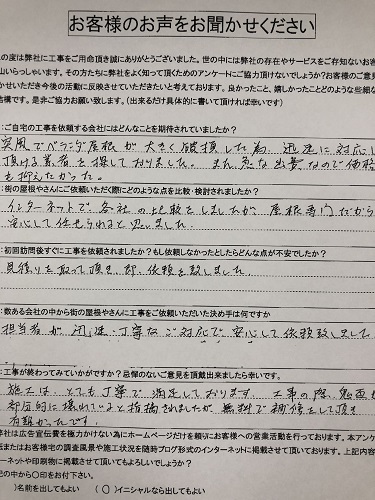 お客様のお声をお聞かせください
の度は弊社に工事をご用命頂き誠にありがとうございました。世の中には弊社の存在やサービスをご存知ないお客
山いらっしゃいます。その方たちに弊社をよく知って頂くためのアンケートにご協力頂けないでしょうか?お客様のご意見
せいただき今後の活動に反映させていただきたいと考えております。良かったこと、嬉しかったことなどのような些細な
結構です。是非ご協力お願い致します。(出来るだけ具体的に書いて頂ければ幸いです)
:ご自宅の工事を依頼する会社にはどんなことを期待されていましたか?
突風でベランダ屋根が大きく破損した為、迅速に対応し
頂ける業者を探しておりました。また急な出費なので価格
も抑えたかった。
:街の屋根やさんにご依頼いただく際にどのような点を比較・検討されましたか?
インターネットで各社の比較をしましたが屋根専門だから
安心して任せられると思いました
:初回訪問後すぐに工事を依頼されましたか?もし依頼しなかったとしたらどんな点が不安でしたか?
見積りを取って頂き即、依頼を致しました
:数ある会社の中から街の屋根やさんに工事をご依頼いただいた決め手は何ですか
担当者が迅速・丁寧なご対応で安心して依頼致しました
:工事が終わってみていかがですか?忌憚のないご意見を頂戴出来ましたら幸いです。
施工はとても丁寧で満足しております。工事の際、鬼瓦
部分的に壊れていると指摘されましたが無料で補修として頂き
有難かったです
弊社は広告宣伝費を極力かけない為にホームページだけを頼りにお客様への営業活動を行っております。本アンケ
せたお客様宅の調査風景や施工状況を随時ブログ形式のインターネットに掲載させて頂いております。上記内容
ーネットや印刷物に掲載させて頂いてもよろしいでしょうか?
記の中から〇印をお付け下さい。
)名前を出してもよい (〇)イニシャルなら出してもよい